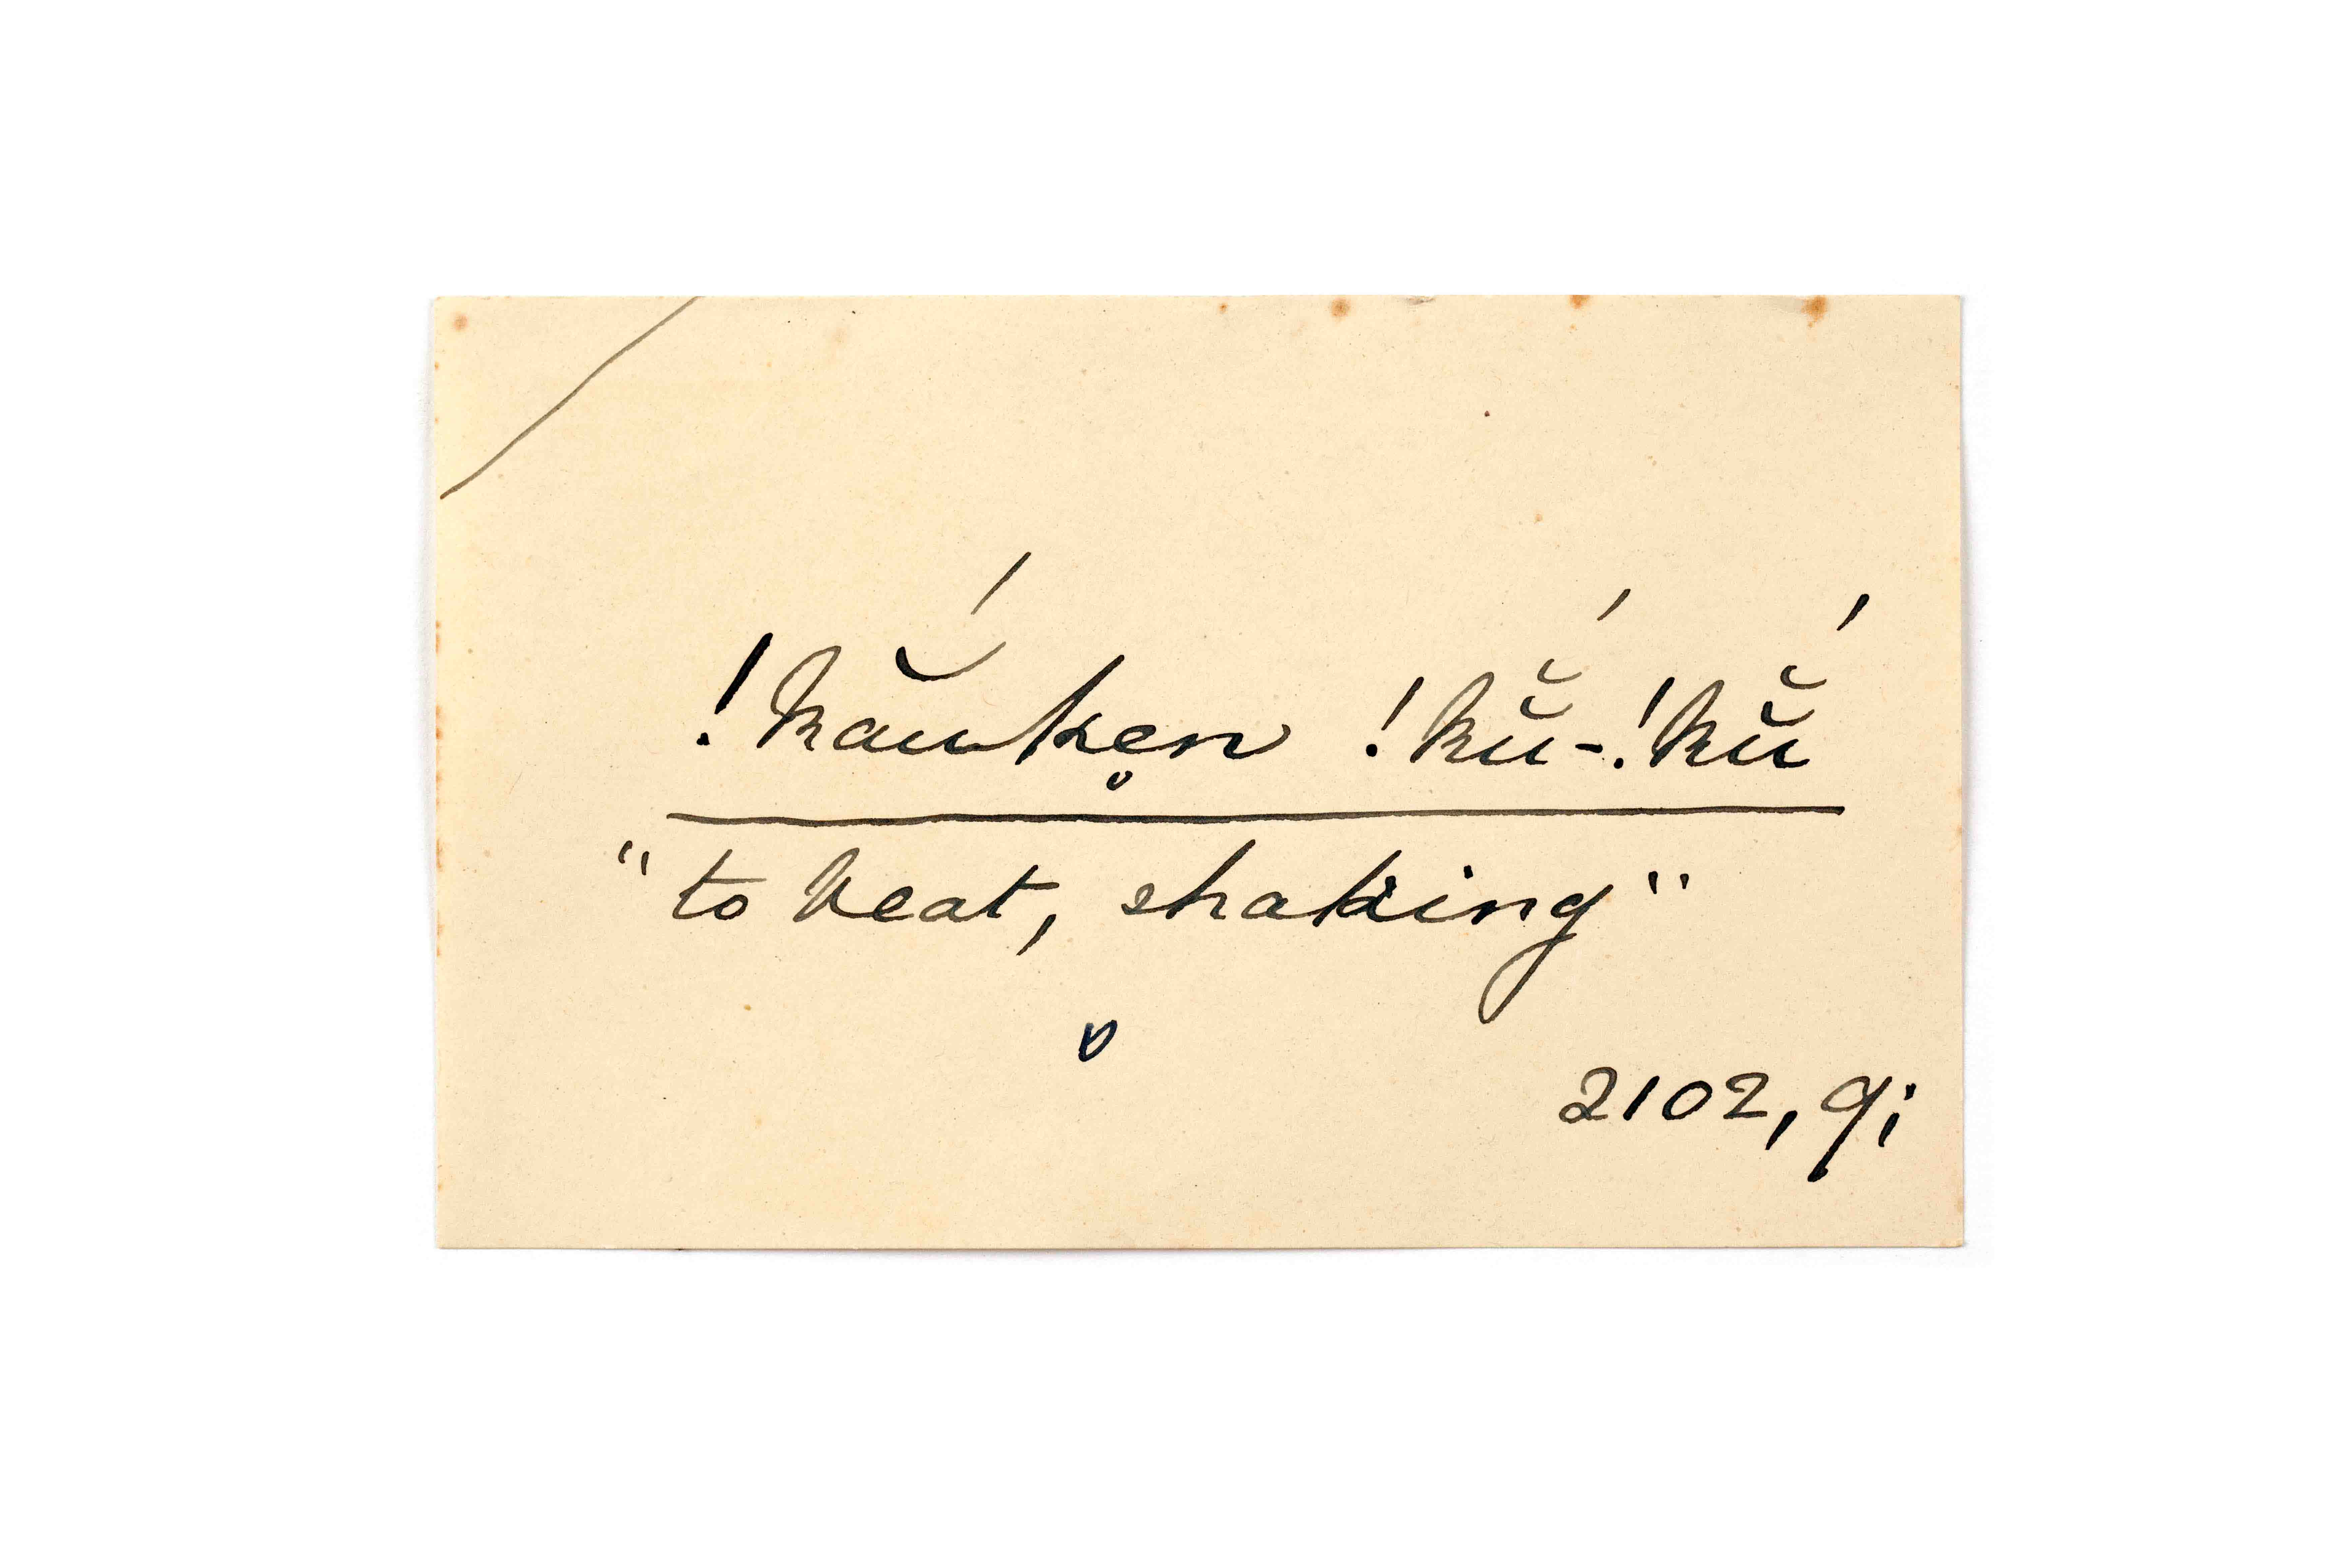 !kắŭkẹn !kŭ̆́-!kŭ̆́
"to beat, shaking"
2102, 9;